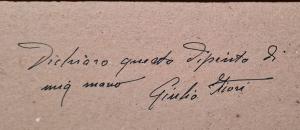 Dichiaro questo dipinto di
mia mano Giulio Fiori